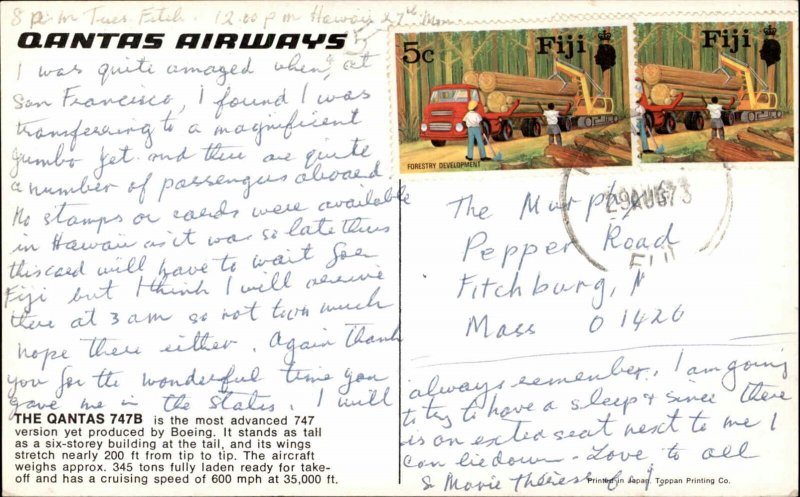 8 p.m Tues. Fitch. 12.00 p m Hawaii 27th Mon
QANTAS AIRWAYS
I was quite amazed when, at
San Francisco, I found I was
transferring to a magnificent
jumbo jet and there are quite
a number of passengers aboard.
No stamps or cards were available
in Hawaii as it was so late thus
this card will have to wait for
Fiji but I think I will arrive
there at 3 am so not too much
hope there either. Again thank
you for the wonderful time you
gave me in the States. I will
THE QANTAS 747B is the most advanced 747
version yet produced by Boeing. It stands as tall
as a six-storey building at the tail, and its wings
stretch nearly 200 ft from tip to tip. The aircraft
weighs approx. 345 tons fully laden ready for take-
off and has a cruising speed of 600 mph at 35,000 ft.
5c Fiji
FORESTRY DEVELOPMENT
Fiji
29 AUG 73
FIJI
The Murphys
Pepper Road
Fitchburg,
Mass 01420
always remember. I am going
to try to have a sleep & since there
is an extra seat next to me I
can lie down. Love to all
& Marie Thérèse
Printed in Japan, Toppan Printing Co.